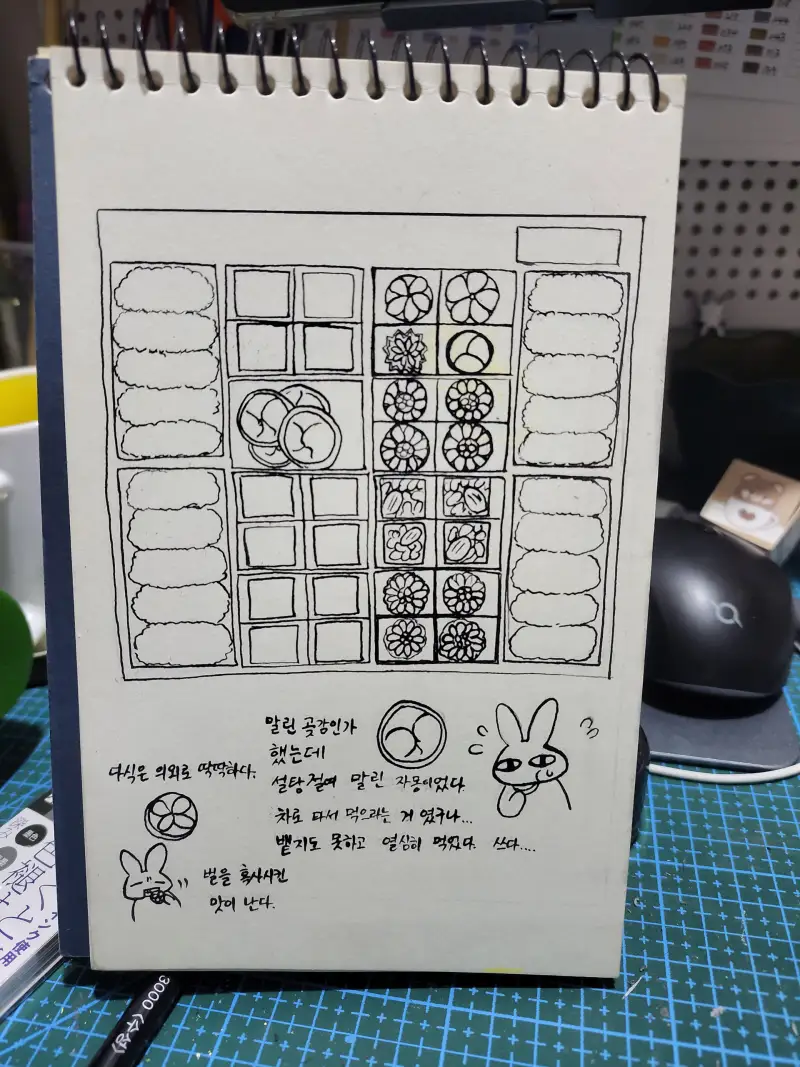 말린 곶감인가
했는데
설탕절여 말린 자몽이었다.
차로 타서 먹으라는 거 였구나...
뱉지도 못하고 열심히 먹었다. 쓰다....
다식은 의외로 딱딱하다.
벌을 혹사시킨
맛이 난다.
3000 <수성>